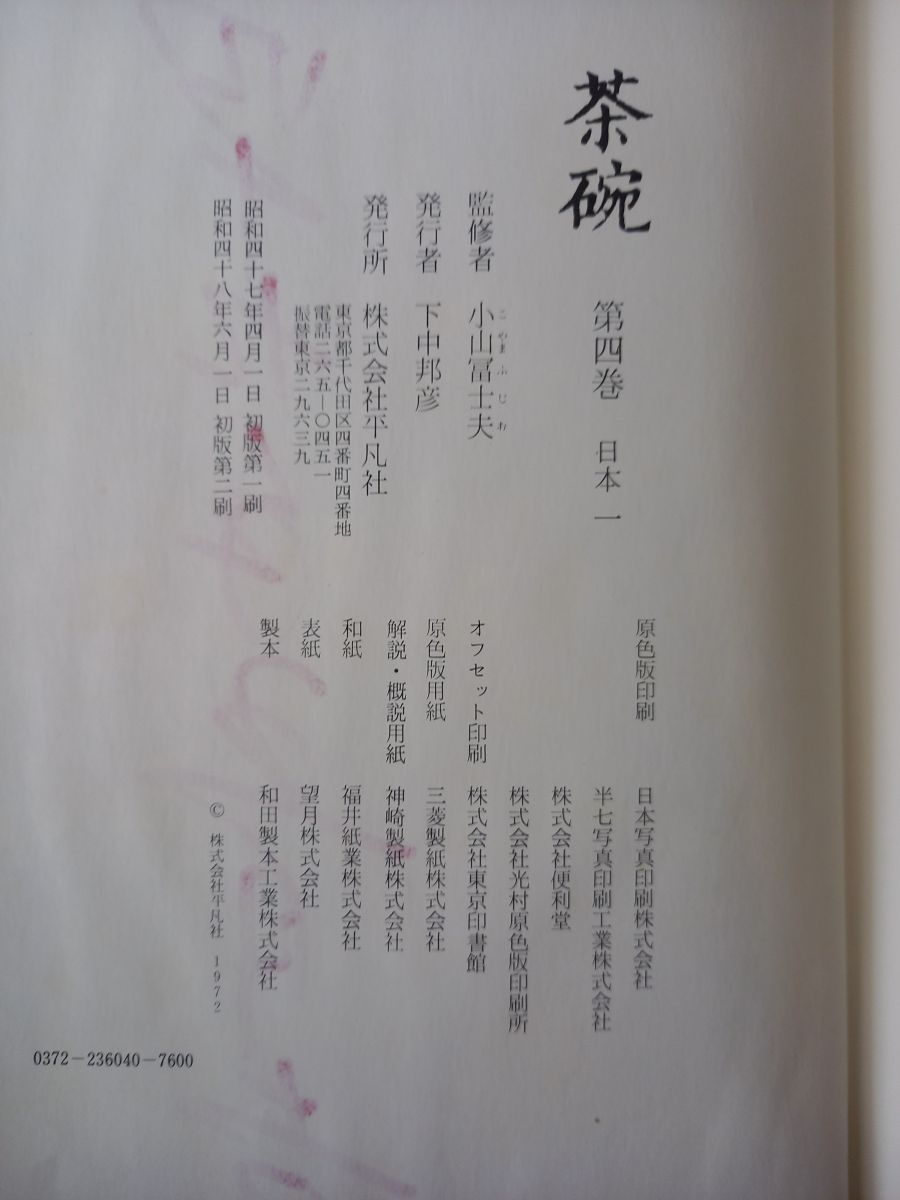 茶碗 第四巻 日本一
監修者 小山冨士夫
こやまふじお
発行者 下中邦彦
発行所 株式会社平凡社
東京都千代田区四番町四番地
電話二六五―〇四五一
振替東京二九六三九
昭和四十七年四月一日 初版第一刷
昭和四十八年六月一日 初版第二刷
原色版印刷 日本写真印刷株式会社
半七写真印刷工業株式会社
株式会社便利堂
株式会社光村原色版印刷所
オフセット印刷 株式会社東京印書館
原色版用紙 三菱製紙株式会社
解説・概説用紙 神崎製紙株式会社
和紙 福井紙業株式会社
表紙 望月株式会社
製本 和田製本工業株式会社
© 株式会社平凡社 1972
0372-236040-7600